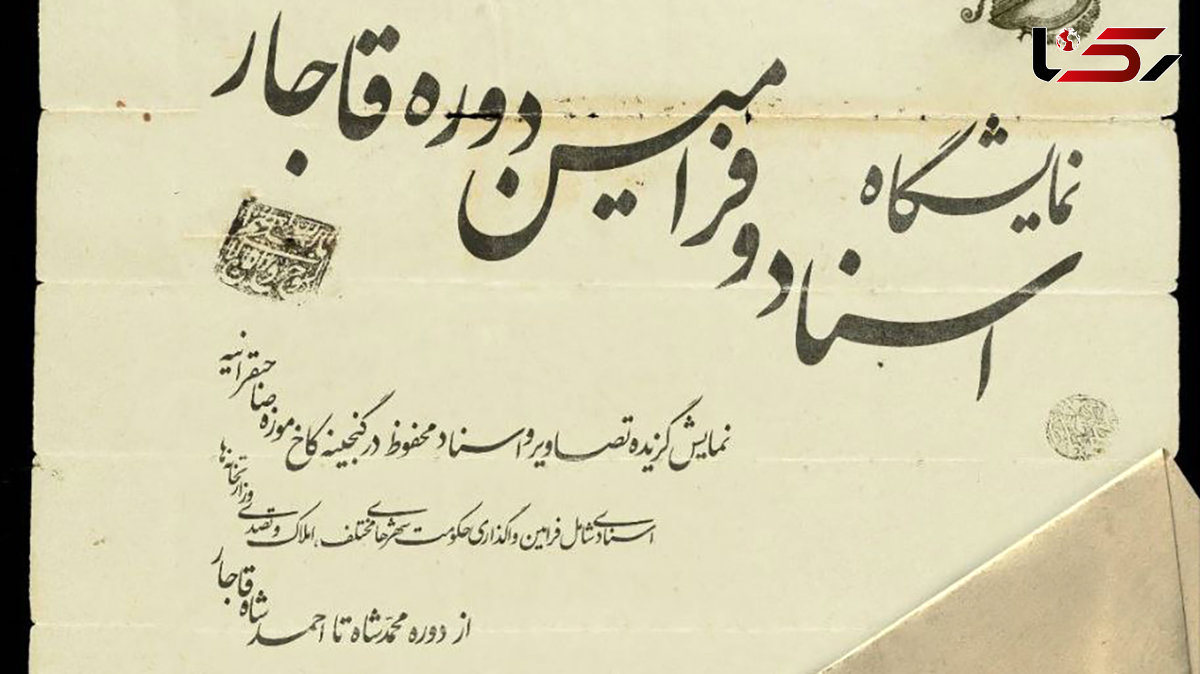 رکنا
نمایشگاه
اسناد و فرامین دوره قاجار
نمایش گزیده تصاویر و اسناد محفوظ در گنجینه کاخ موزه صاحبقرانیه
اسنادی شامل فرامین واگذاری حکومت شهرهای مختلف، املاک و تصدی وزارتخانه‌ها
از دوره محمدشاه تا احمد شاه قاجار